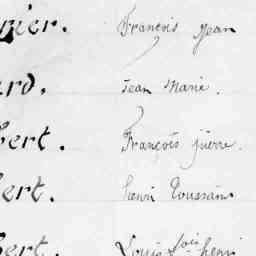 nier. François Jean
ard. Jean Marie.
bert. François Pierre.
bert. henri Toussain
bert. Louis fois henri